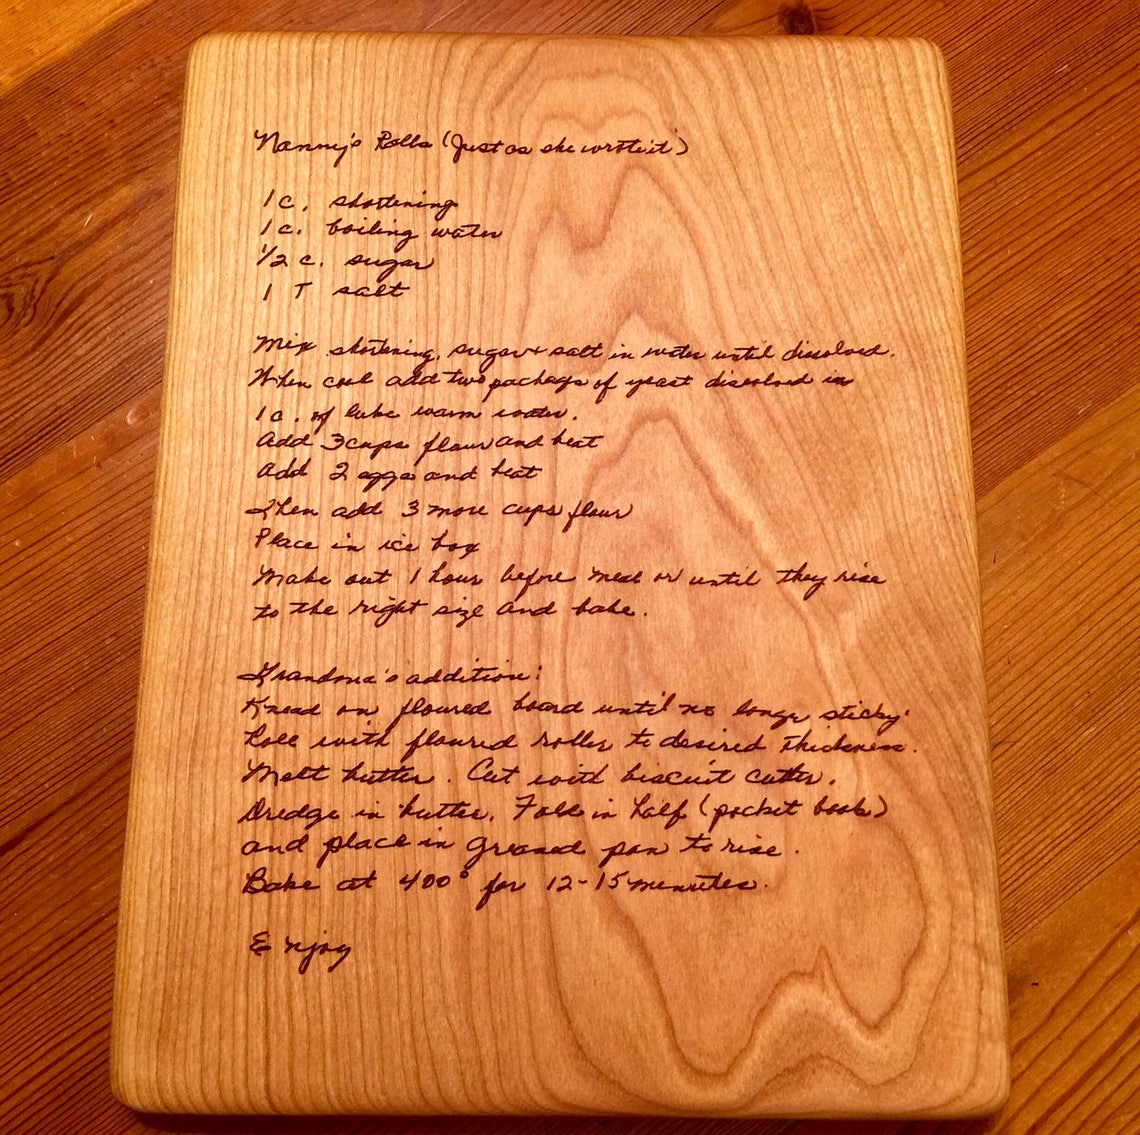 Nanny's Rolls (Just as she wrote it)
1 c. shortening
1 c. boiling water
1/2 c. sugar
1 T salt
Mix shortening, sugar + salt in water until dissolved.
When cool add two packages of yeast dissolved in
1 c. of luke warm water.
Add 3 cups flour and beat
Add 2 eggs and beat
Then add 3 more cups flour
Place in ice box
Make out 1 hour before meal or until they rise
to the right size and bake.
Grandma's addition:
Knead on floured board until no longer sticky.
Roll with floured roller to desired thickness.
Melt butter. Cut with biscuit cutter.
Dredge in butter. Fold in half (pocket book)
and place in greased pan to rise.
Bake at 400° for 12-15 minutes.
Enjoy